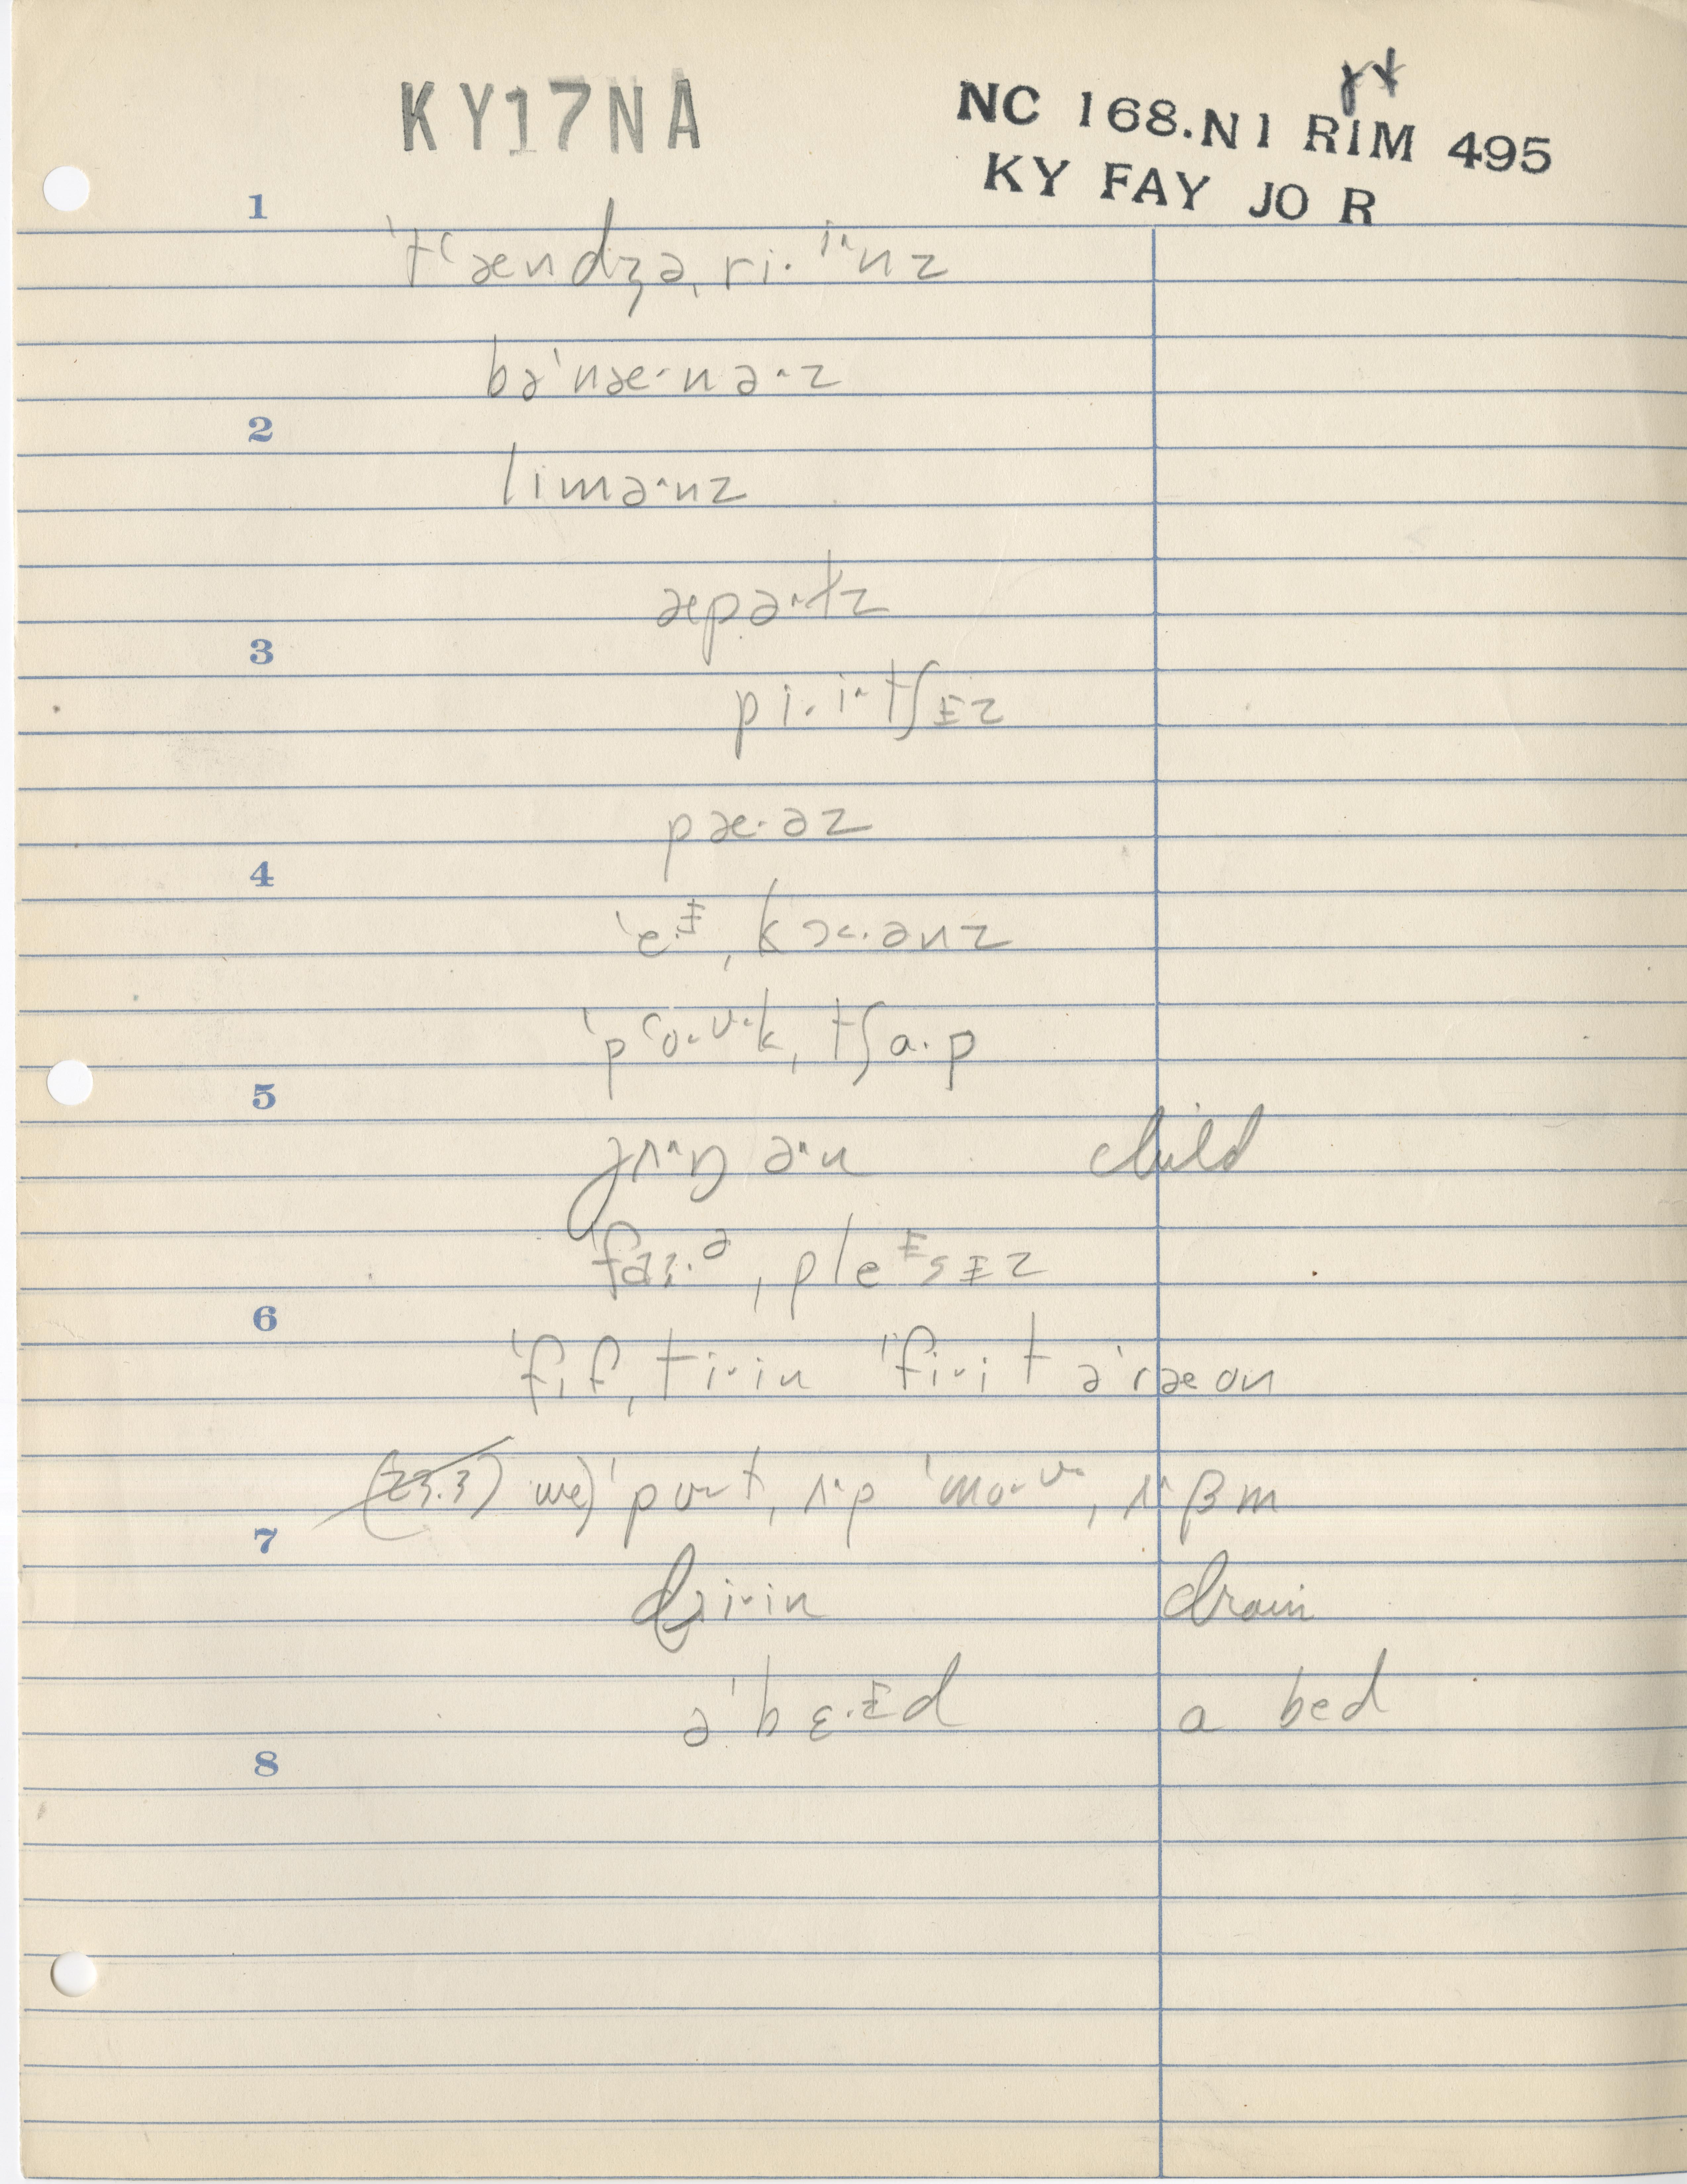 KY17NA
NC 168.N1 RIM 495
KY FAY JO R
1
ˈtʻændʒəˌri·ɨˆnz
bəˈnæ·nəˑz
2
limə·nz
æpə·tz
3
pi·i·tʃᵻz
pæ·əz
4
ˈe·ᵻˌkɔ·ənz
ˈpʻo·ʊ·kˌtʃɑ·p
5
jʌˑŋ əˑn child
ˈfaɪ·əˌpleᵻsᵻz
6
ˈfɪfˌti·in ˈfi·it əˈræon
we) ˈpʊ·tˌʌ·p ˈmo·ʊˌʌ·βm
7
dri·in drain
əˈbɛ·ᵻd a bed
8